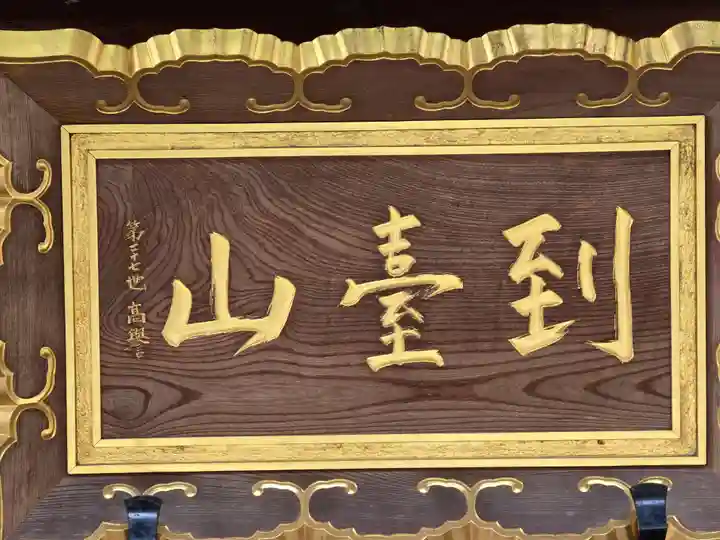 到臺山
第二十七世 高興書